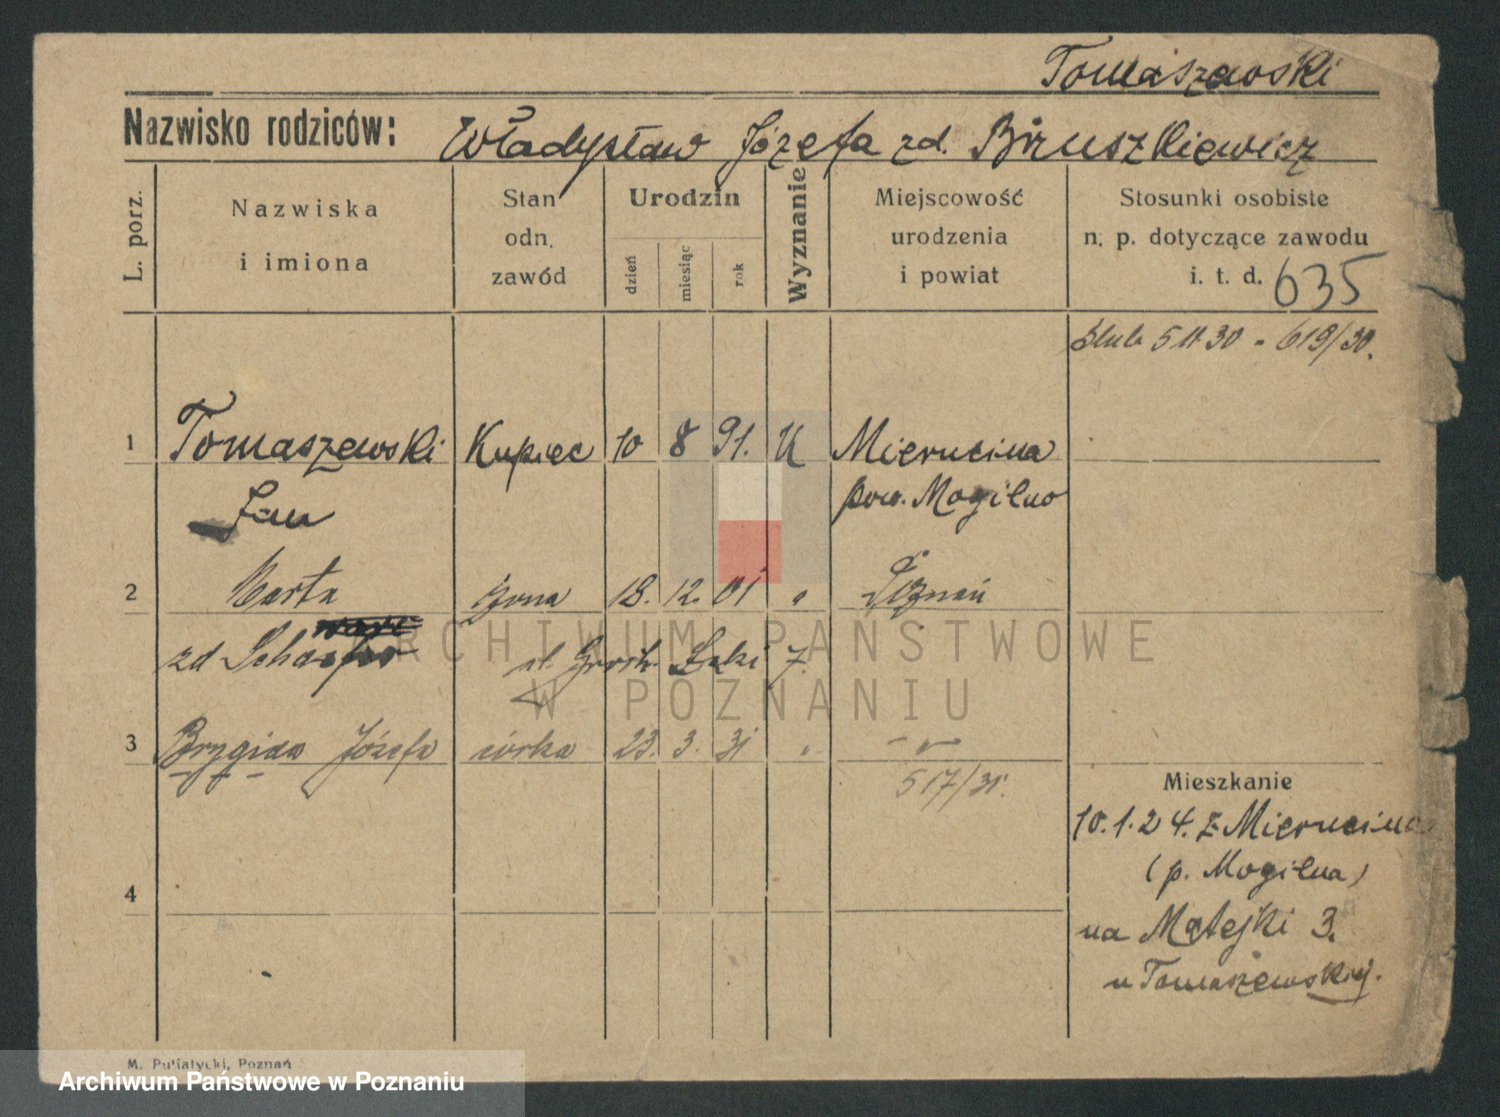 Tomaszewski
Nazwisko rodziców: Władysław Józefa zd. Bruszkiewicz
L. porz.
Nazwiska i imiona
Stan odn. zawód
Urodzin
dzień
miesiąc
rok
Wyznanie
Miejscowość urodzenia i powiat
Stosunki osobiste n. p. dotyczące zawodu i. t. d. 635
ślub 5 11 30 - 619/30.
1 Tomaszewski Kupiec 10 8 91. K Mierucina
Jan pow. Mogilno
2 Marta żona 18. 12. 01 " Poznań
zd
3 Brygida Józefa córka 23. 3. 31 " - " -
517/31.
Mieszkanie
10.1.24. z Mierucina
(p. Mogilna)
4
na Matejki 3.
u Tomaszewskiej.
M. Putiatycki, Poznań
ARCHIWUM PAŃSTWOWE
W POZNANIU
Archiwum Państwowe w Poznaniu